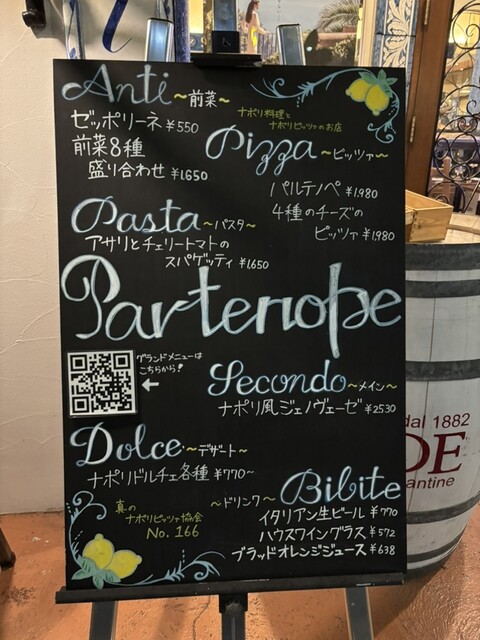 Anti ~前菜~
ゼッポリーネ ¥550
前菜8種
盛り合わせ ¥1,650
ナポリ料理と
ナポリピッツァのお店
Pizza ~ピッツァ~
パルテノペ ¥1,980
4種のチーズの
ピッツァ ¥1,980
Pasta ~パスタ~
アサリとチェリートマトの
スパゲッティ ¥1,650
Partenope
グランドメニューは
こちらから!
←
Secondo ~メイン~
ナポリ風ジェノヴェーゼ ¥2530
Dolce ~デザート~
ナポリドルチェ各種 ¥770~
真の
ナポリピッツァ協会
No. 166
~ドリンク~ Bibite
イタリアン生ビール ¥770
ハウスワイングラス ¥572
ブラッドオレンジジュース ¥638
dal 1882